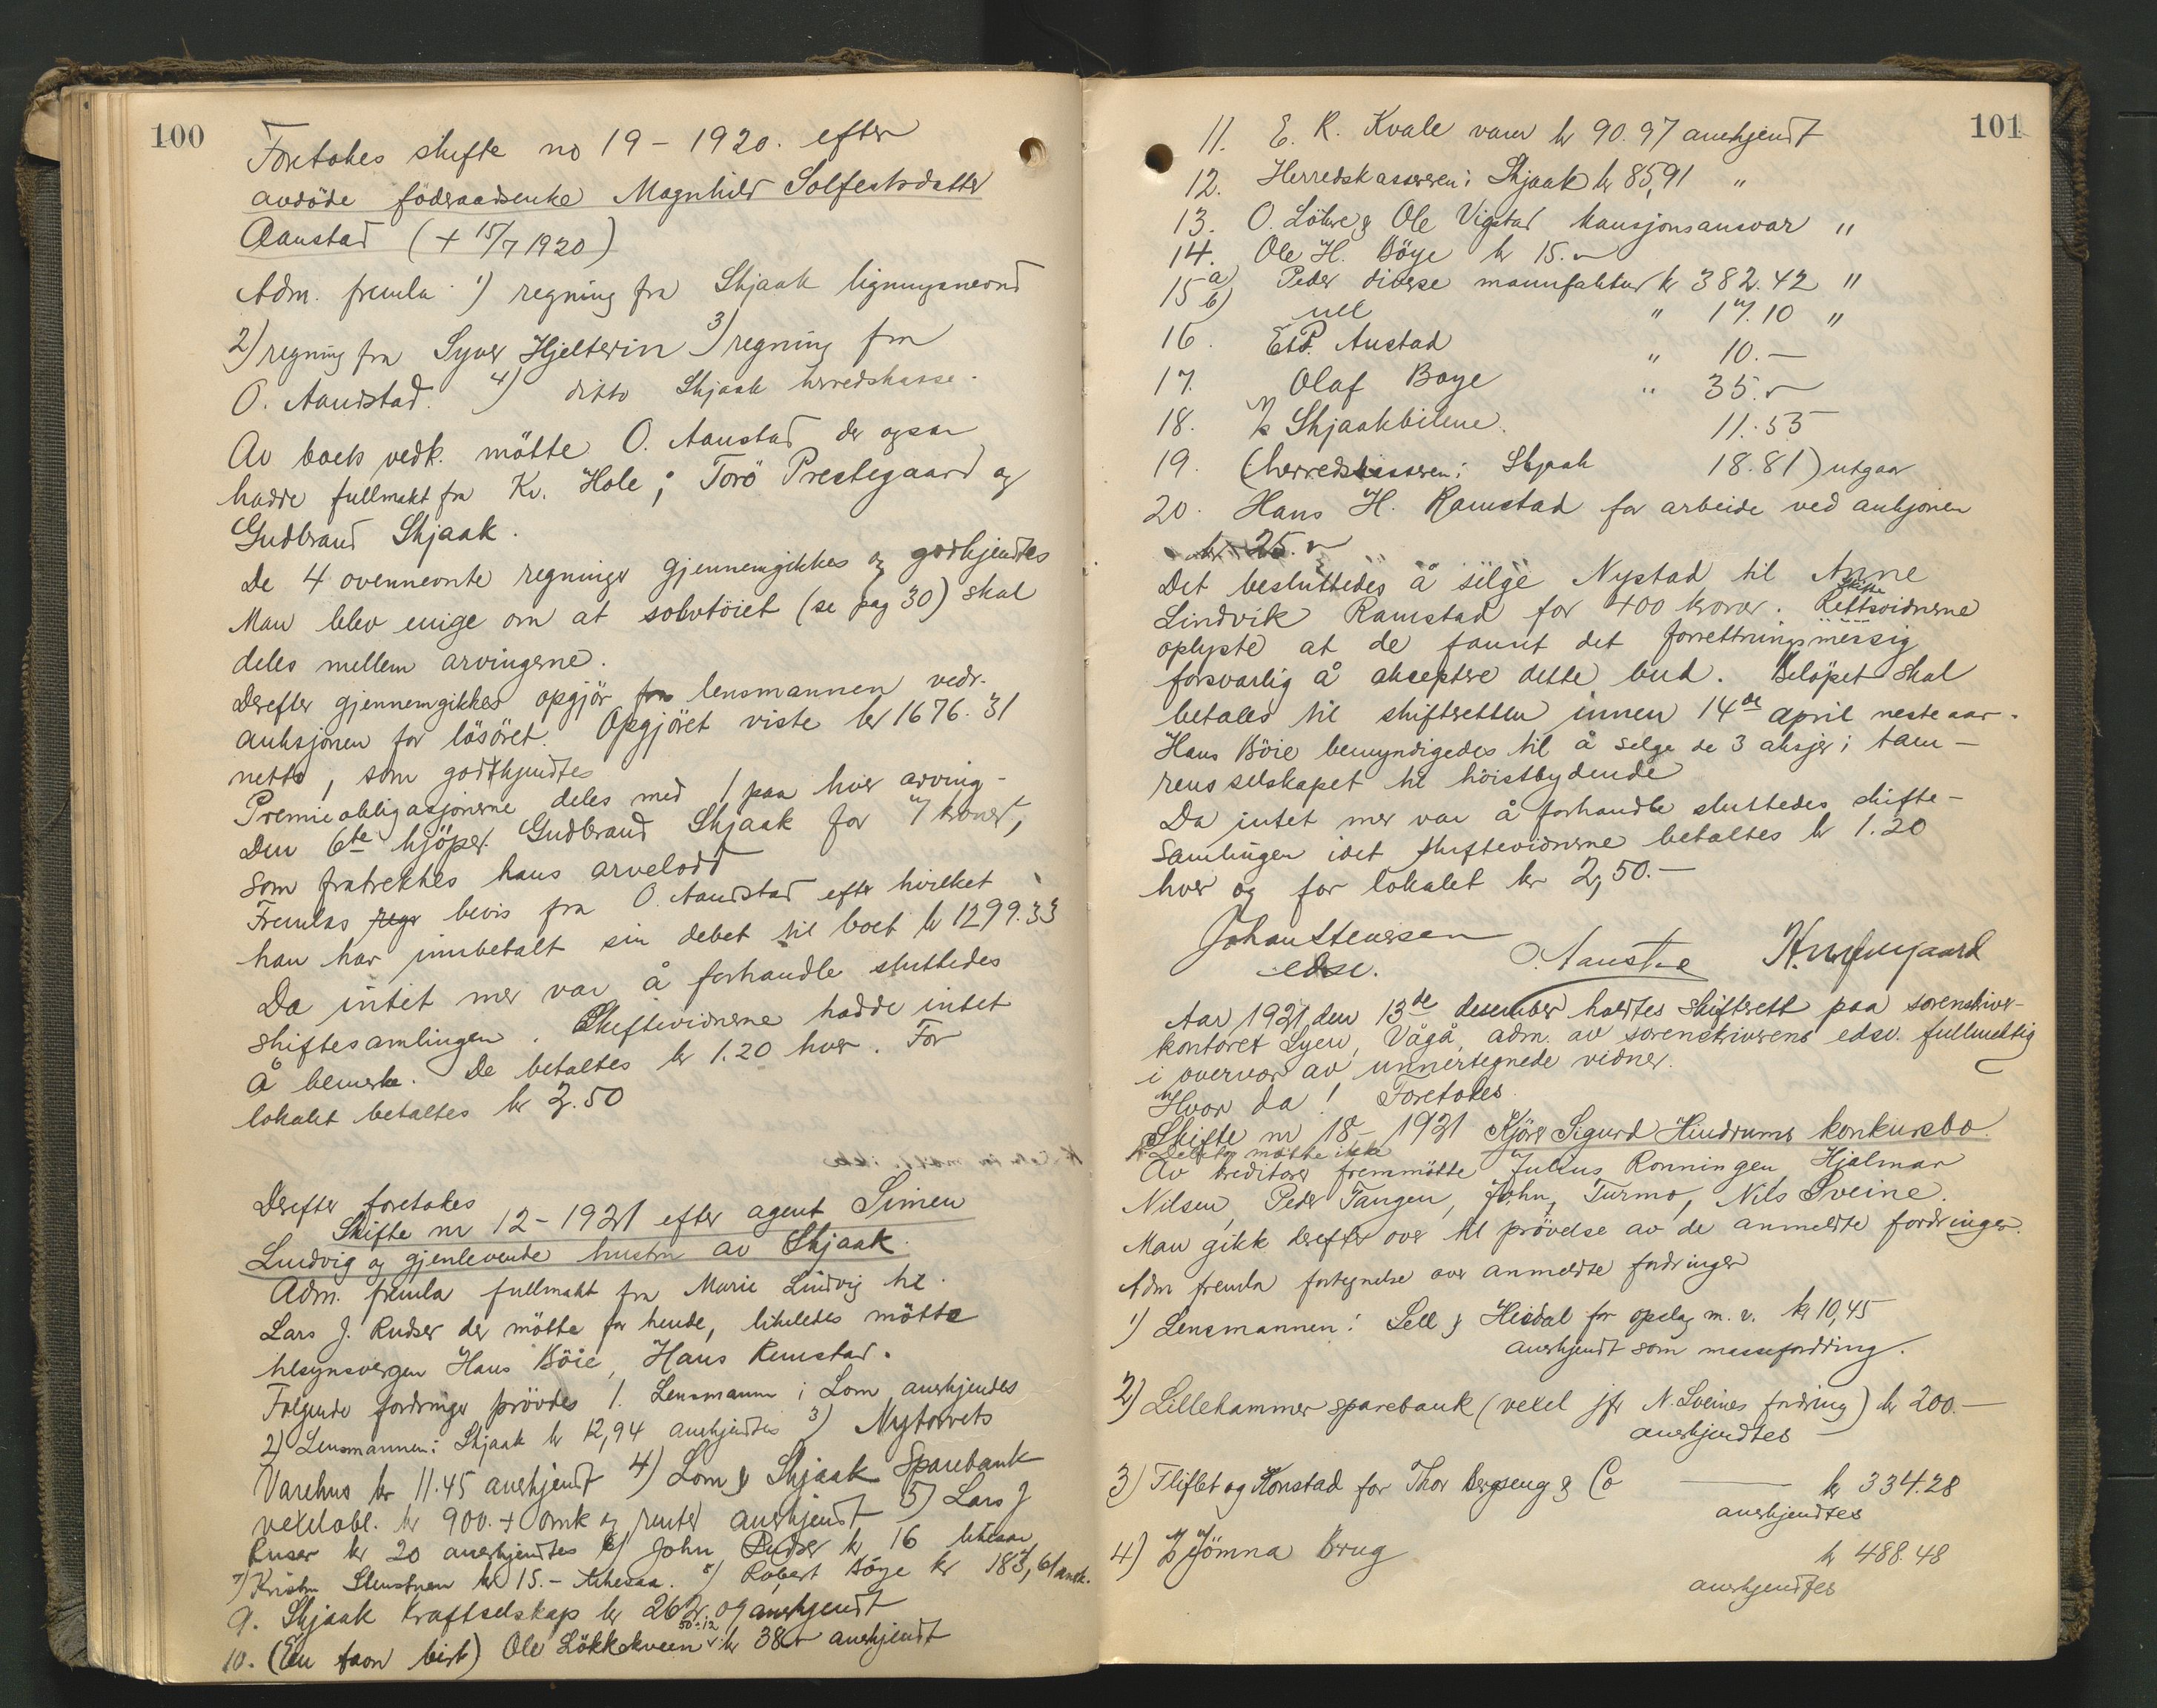 100
Foretokes skifte no 19 - 1920. efter
avdöde föderaadsenke Magnhild Solfestsdatter
Aanstad (+ 15/7 1920)
Adm. fremla 1) regning fra Skjaak ligningsnevnd
2) regning fra Syver Hjeltevin 3) regning fra
O. Aanstad. 4) ditto Skjaak herredskasse.
Av boets vedk. mötte O. Aanstad der ogsaa
hadde fullmakt fra Kr. Hole; Torö Prestegaard og
Gudbrand Skjaak.
De 4 ovennevnte regninger gjennemgikkes og godkjendtes
Man blev enige om at solvtöiet (se pag 30) skal
deles mellem arvingerne.
Derefter gjennemgikkes opgjör fra lensmannen vedr.
auksjonen for lösöret. Opgjöret viste kr 1676.31
netto, som godkjendtes
Premieobligasjonerne deles med 1 paa hver arving -
Den 6te kjöper Gudbrand Skjaak for 7 kroner,
som fratrekkes hans arvelodd
Fremlas regn bevis fra O. Aanstad efter hvilket
han har innbetalt sin debet til boet kr 1299.33
Da intet mer var å forhandle sluttedes
skiftesamlingen. Skiftevidnerne hadde intet
å bemerke. De betaltes kr 1.20 hver. For
lokalet betaltes kr 2.50
Derefter foretokes
Skifte nr 12 - 1921 efter agent Simen
Lindvig og gjenlevende hustru av Skjaak.
Adm. fremla fullmakt fra Marie Lindvig til
Lars J. Rudser der mötte for hende, likeledes mötte
tilsynsvergen Hans Böie, Hans Ramstad.
Folgende fordringer prövdes 1. Lensmannen i Lom anerkjendes
2) Lensmannen i Skjaak kr 12,94 anerkjendtes 3) Nytorvets
Varehus kr 11.45 anerkjendt 4) Lom & Skjaak Sparebank
vexelobl. kr 900.+ omk og renter anerkjendt 5) Lars J
Ruser kr 20 anerkjendtes 6) John Rudser kr 16 likesaa
7) Kristen Stenstuen kr 15.- likesaa. 8) Robert Böye kr 183,61 anerk.
9. Skjaak Kraftselskap kr 262.09 anerkjendt
50.12
10. (En faon birk) Ole Lökkekveen kr 38 anerkjendt
101
11. E. R. Kvale varer kr 90.97 anerkjendt
12. Herredskassereren i Skjaak kr 85,91 "
13. O. Lökre & Ole Vigstad kausjonsansvar "
14. Ole H. Böye kr 15.-
15 a) Peder diverse manufaktur kr 382.42 "
15 b) ull " 17.10 "
16. E. P. Austad " 10.-
17. Olaf Boye " 35.-
18. A/S Skjaakbilene. 11.55
19. (herredskassereren i Skjaak 18.81) utgaar
20. Hans H. Ramstad for arbeide ved auksjonen
kr 25.-
Det besluttedes å selge Nystad til Anne
Lindvik Ramstad for 400 kroner. Skifte Rettsvidnerne
oplyste at de fannt det forrettningsmessig
forsvarlig å akseptere dette bud. Belöpet skal
betales til skifteretten innen 14de april neste aar.
Hans Böie bemyndigedes til å selge de 3 aksjer i tam-
rensselskapet til höistbydende
Da intet mer var å forhandle sluttedes skifte-
samlingen idet skiftevidnerne betaltes kr 1.20
hver og for lokalet kr 2,50.-
Johan Stenersen
edsv.
Aar 1921 den 13de desember holdtes skifterett paa sorenskriver-
kontoret Lyen, Vågå, adm. av sorenskriverens edsv. fullmektig
i overvær av unnertegnede vidner.
Hvor da! Foretokes
Skifte nr 18 - 1921 Kjörer Sigurd Hindrums konkursbo.
Debitor mötte ikke
Av kreditorer fremmötte Julius Ronningen Hjalmar
Nilsen, Peder Tangen, John Turmo, Nils Sveine.
Man gikk derefter over til prövelse av de anmeldte fordringer.
Adm fremla fortegnelse over anmeldte fordringer
1) Lensmannen i Sell & Heidal for opslag m. v. kr 10,45
anerkjendt som massefordring.
2) Lillehammer sparebank (vexel jfr N. Sveines fordring) kr 200.-
anerkjendtes
3) Fliflet og Konstad for Thor Bergseng & Co kr 334.28
anerkjendtes
4) A/S Jömna Brug kr 488.48
anerkjendtes